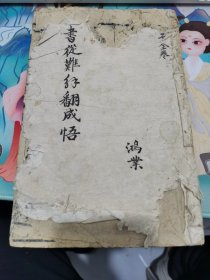 子全卷
書從難解翻成悟
鴻業